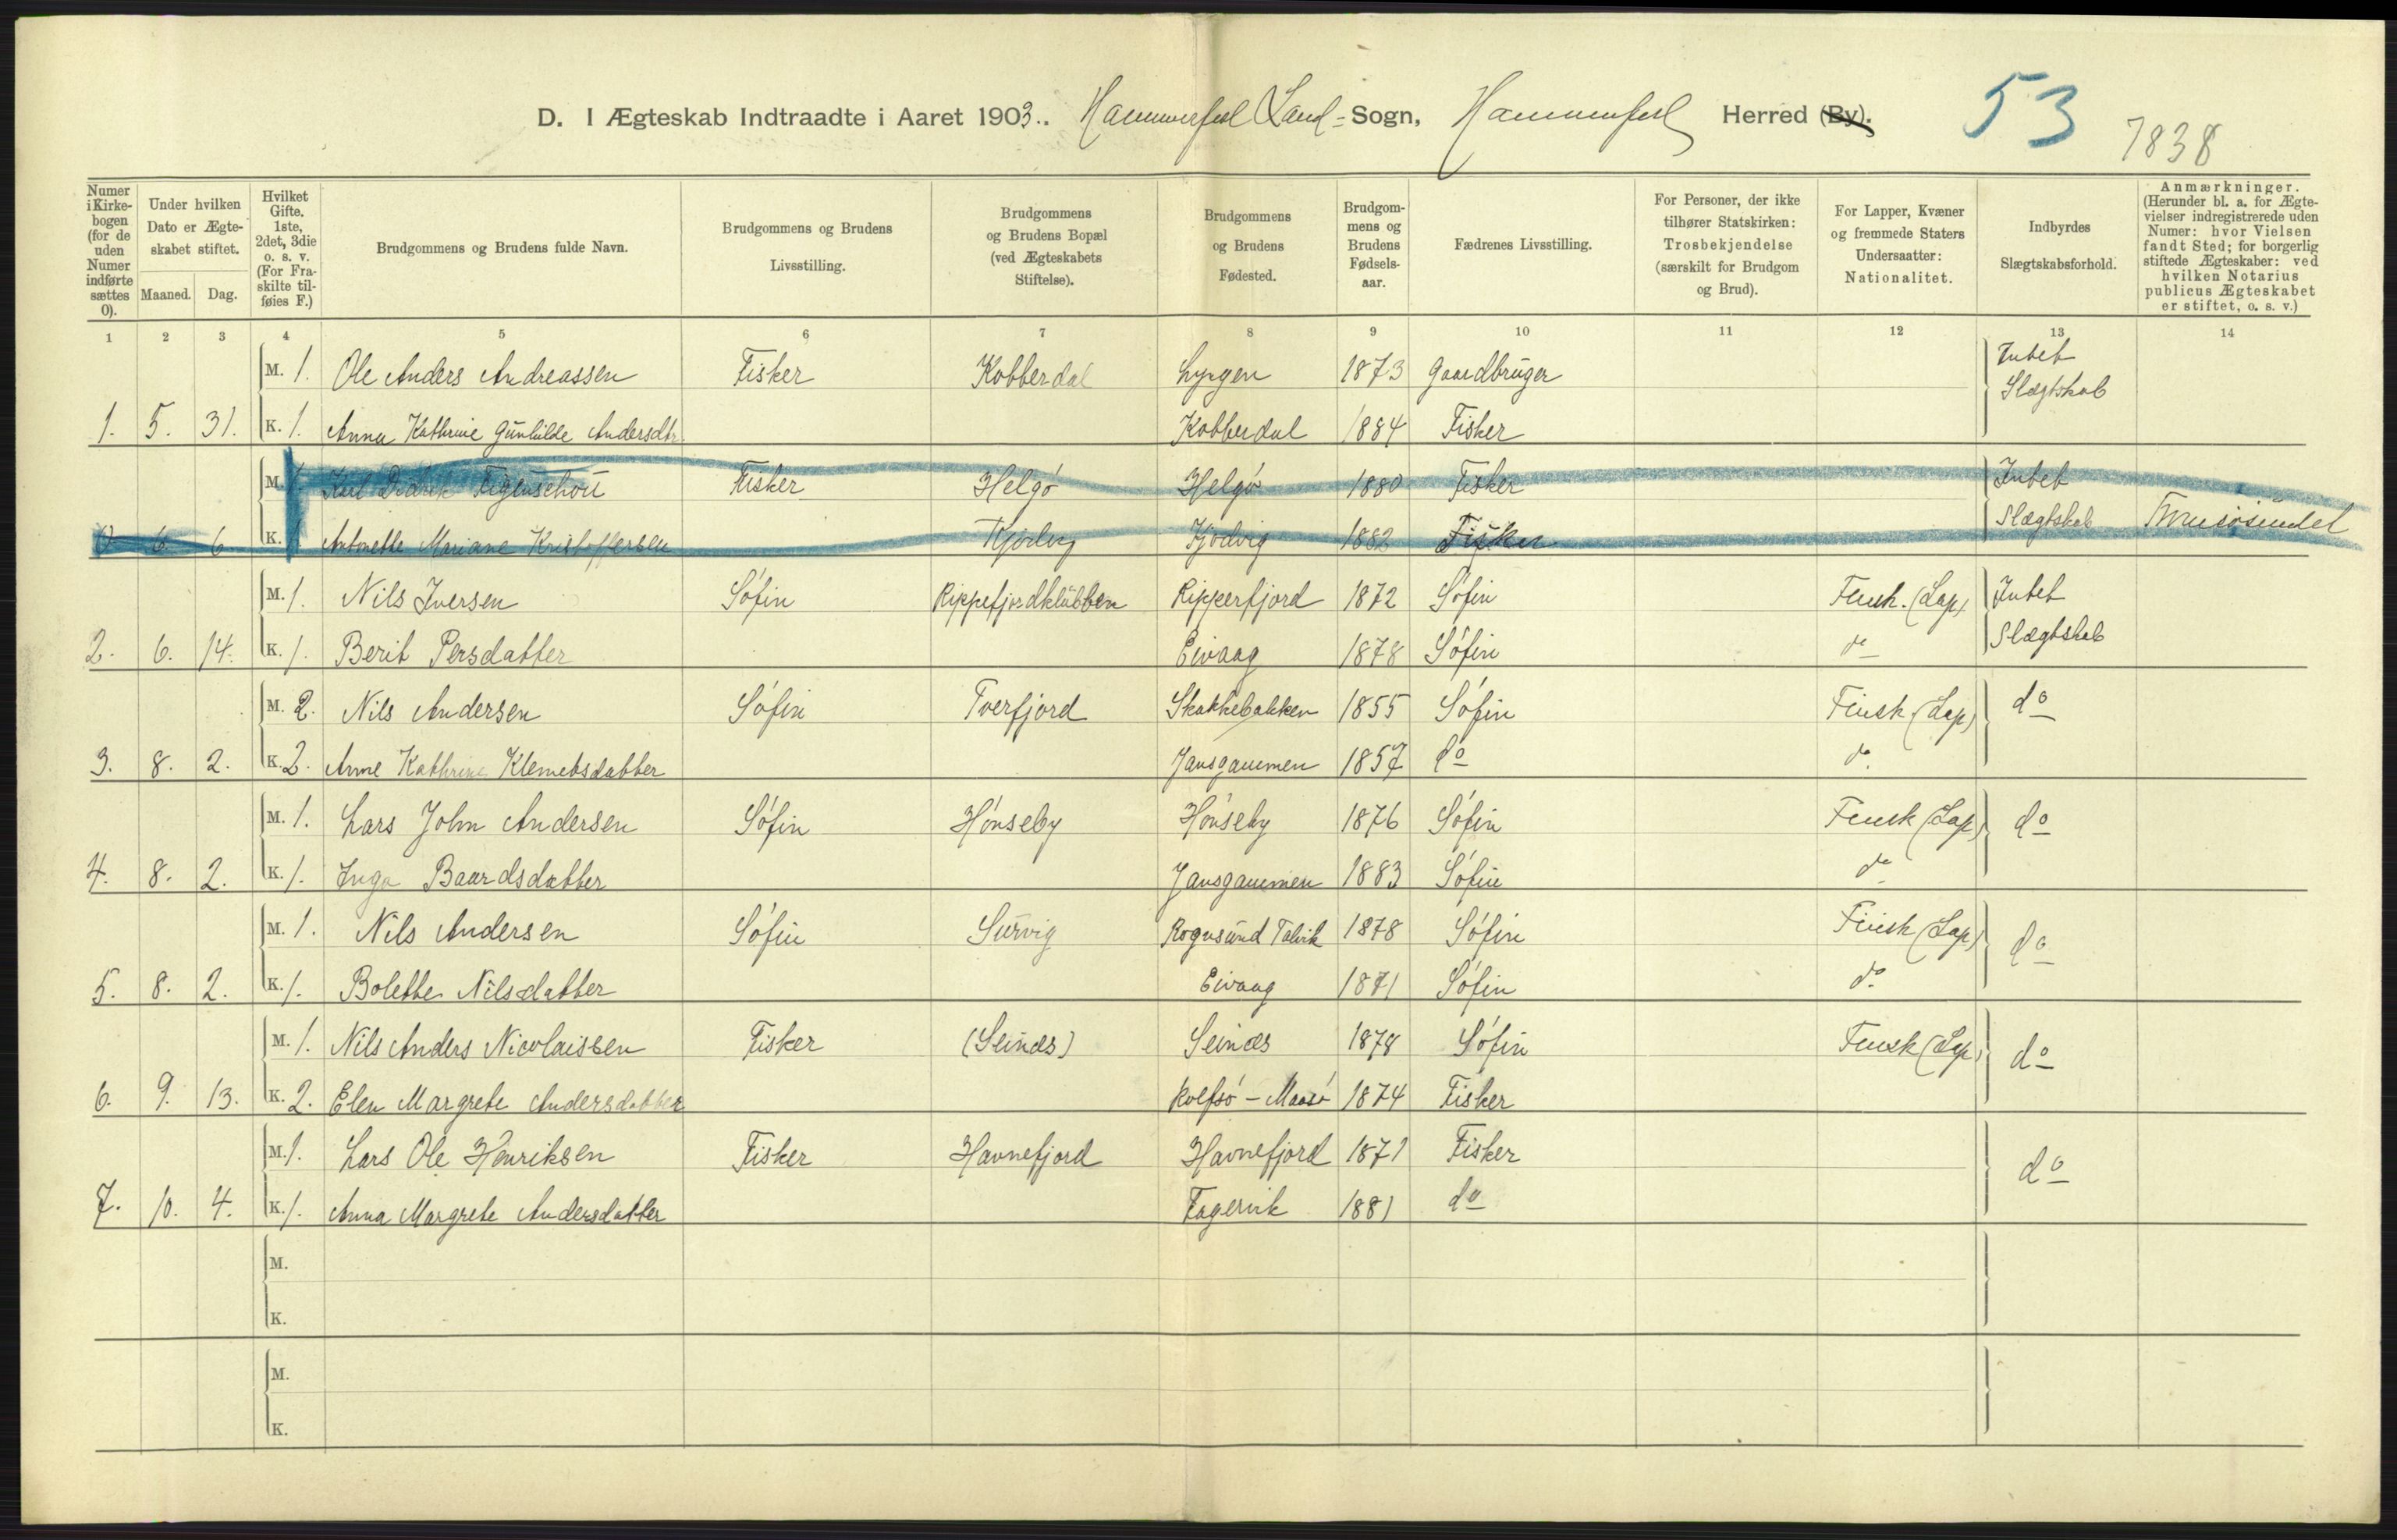 D. I Ægteskab Indtraadte i Aaret 1903.. Hammerfest Land- Sogn, Hammerfest Herred (By). 53
7838
Numer i Kirke-bogen (for de uden Numer indførte sættes 0).
Under hvilken Dato er Ægte-skabet stiftet.
Maaned. Dag.
Hvilket Gifte. 1ste, 2det, 3die o. s. v. (For Fra-skilte til-føies F.)
Brudgommens og Brudens fulde Navn.
Brudgommens og Brudens Livsstilling.
Brudgommens og Brudens Bopæl (ved Ægteskabets Stiftelse).
Brudgommens og Brudens Fødested.
Brudgom-mens og Brudens Fødsels-aar.
Fædrenes Livsstilling.
For Personer, der ikke tilhører Statskirken: Trosbekjendelse (særskilt for Brudgom og Brud).
For Lapper, Kvæner og fremmede Staters Undersaatter: Nationalitet.
Indbyrdes Slægtskabsforhold.
Anmærkninger. (Herunder bl. a. for Ægte-vielser indregistrerede uden Numer: hvor Vielsen fandt Sted; for borgerlig stiftede Ægteskaber: ved hvilken Notarius publicus Ægteskabet er stiftet, o. s. v.)
1 2 3 4 5 6 7 8 9 10 11 12 13 14
M. 1. Ole Anders Andreassen Fisker Kobberdal Lyngen 1873 Gaardbruger Intet Slægtskab
1. 5. 31. K. 1. Anna Kathrine Gunhilde Andersdtr. Kobberdal 1884 Fisker
M. 1. Didrik Figenschou Fisker Helgö Helgö 1880 Fisker Intet
0 6. 6 K. 1 Antonette Mariane Kristoffersen 1882 Fisker Slægtskab
M. 1. Nils Iversen Söfin Rippefjordklubben Ripperfjord 1872 Söfin Finsk. (Lap) Intet
2. 6. 14. K. 1. Berit Persdatter Eivaag 1878 Söfin do Slægtskab
M. 2. Nils Andersen Söfin Tverfjord Skakkebakken 1855 Söfin Finsk (Lap) do
3. 8. 2. K. 2. Anne Kathrine Klemetsdatter Jansgammen 1857 do do
M. 1. Lars John Andersen Söfin Hönseby Hönseby 1876 Söfin Finsk (Lap) do
4. 8. 2. K. 1. Inga Baardsdatter Jansgammen 1883 Söfin do
M. 1. Nils Andersen Söfin Survig Rognsund Talvik 1878 Söfin Finsk (Lap) do
5. 8. 2. K. 1. Bolette Nilsdatter Eivaag 1871 Söfin do
M. 1. Nils Anders Nicolaissen Fisker (Seinæs) Seinæs 1878 Söfin Finsk (Lap) do
6. 9. 13. K. 2. Elen Margrete Andersdatter Rolfsö - Maasö 1874 Fisker
M. 1. Lars Ole Henriksen Fisker Havnefjord Havnefjord 1871 Fisker do
7. 10. 4. K. 1. Anna Margrete Andersdatter Fagervik 1881 do
M.
K.
M.
K.